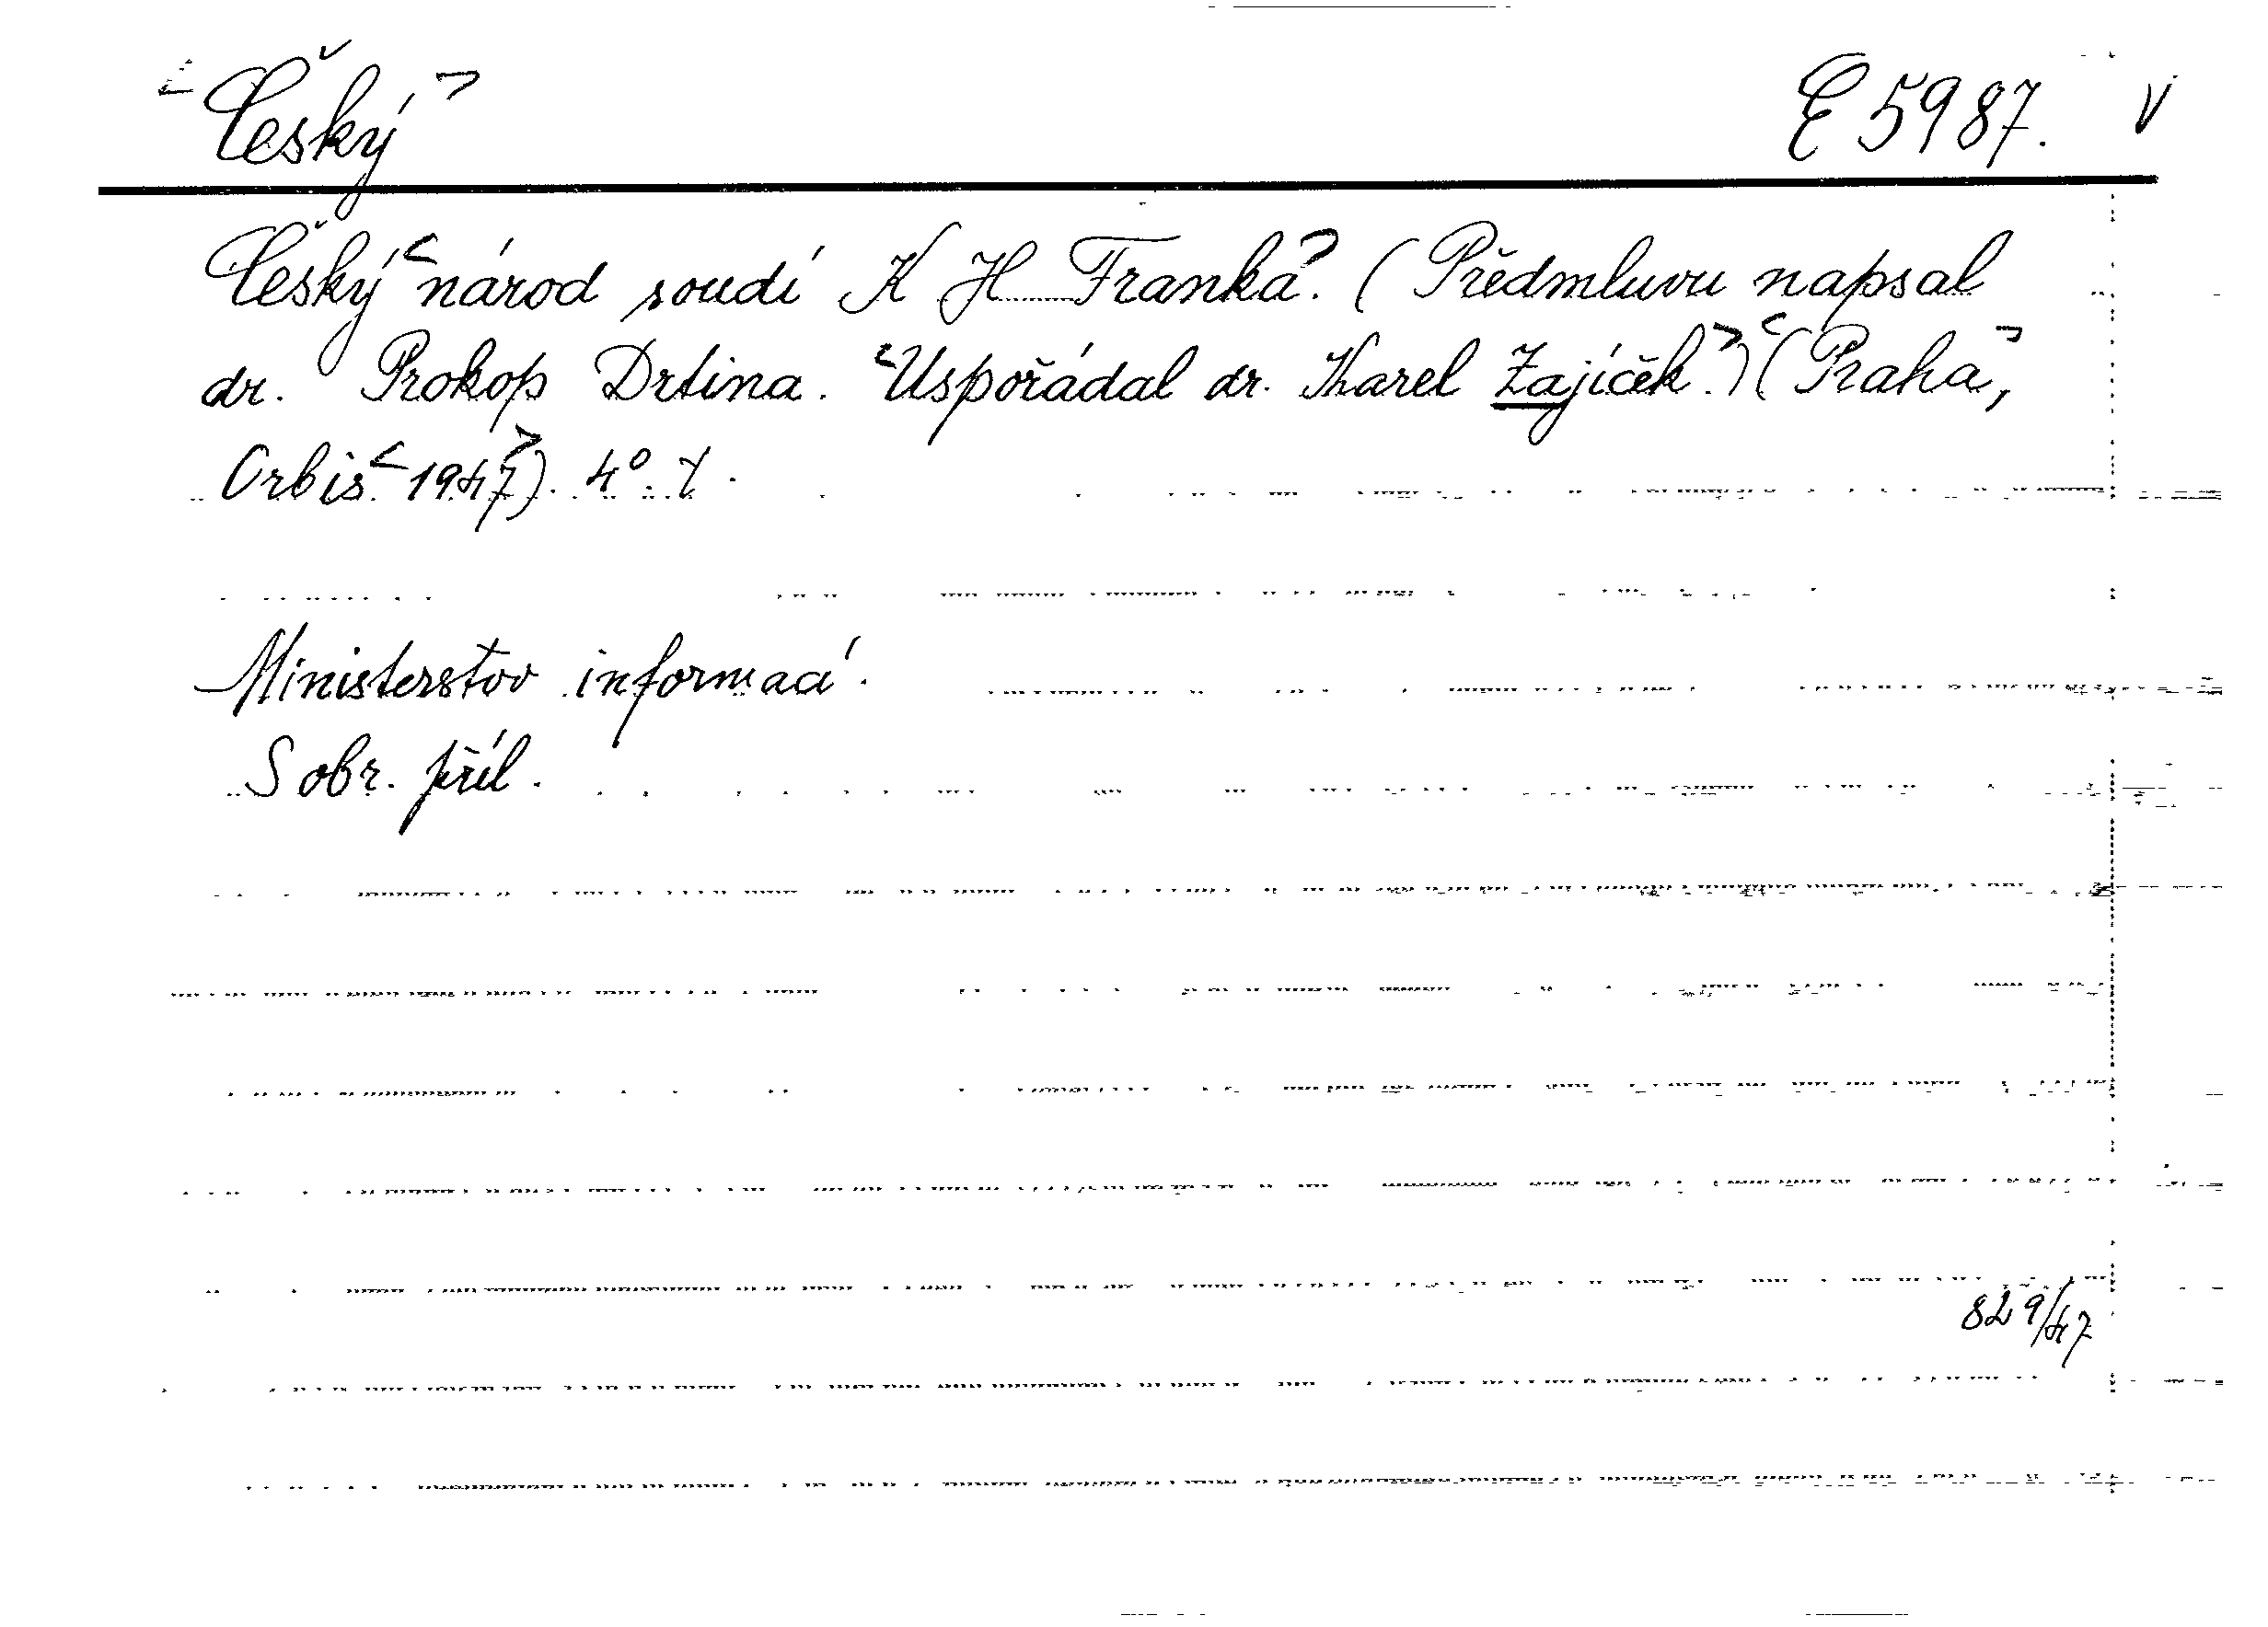 Český E 5987. V
Český národ soudí K H Franka. (Předmluvu napsal
dr. Prokop Drtina. Uspořádal dr. Karel Zajíček.) (Praha,
Orbis 1947). 4°.
Ministerstvo informací.
S obr. příl.
829/47